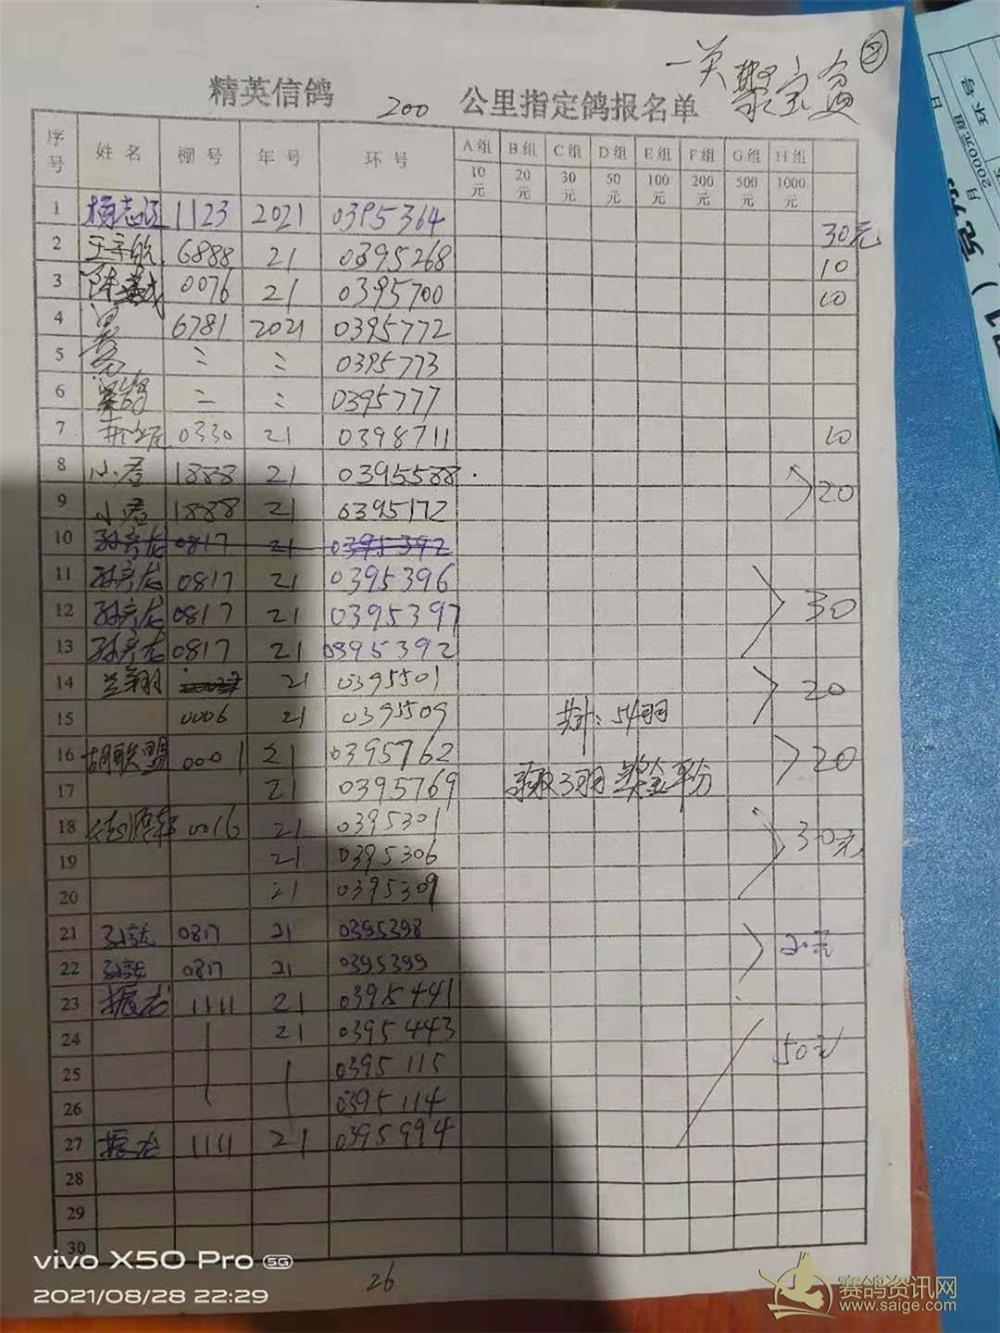 一关聚宝盆 ②
精英信鸽 200 公里指定鸽报名单
序号 姓名 棚号 年号 环号 A组 B组 C组 D组 E组 F组 G组 H组
10元 20元 30元 50元 100元 200元 500元 1000元
1 1123 2021 0395364 30元
2 6888 21 0395268 10
3 0076 21 0395700 10
4 6781 2021 0395772
5 0395773
6 0395777
7 0330 21 0398711 10
8 小君 1888 21 0395588
9 小君 1888 21 0395172 20
10 孙彦龙 0817 21 0395392
11 孙彦龙 0817 21 0395396
12 孙彦龙 0817 21 0395397 30
13 孙彦龙 0817 21 0395392
14 兰翔 21 0395501 20
15 0006 21 0395509 共计:54羽
16 胡联盟 0001 21 0395762 20
17 21 0395769 录取3羽 奖金平分
18 0016 21 0395301 30元
19 21 0395306
20 21 0395309
21 0817 21 0395398 20元
22 0817 21 0395399
23 振龙 1111 21 0395441
24 21 0395443 50元
25 0395115
26 0395114
27 振龙 1111 21 0395994
28
29
30
26
vivo X50 Pro 5G
2021/08/28 22:29
赛鸽资讯网
www.saige.com